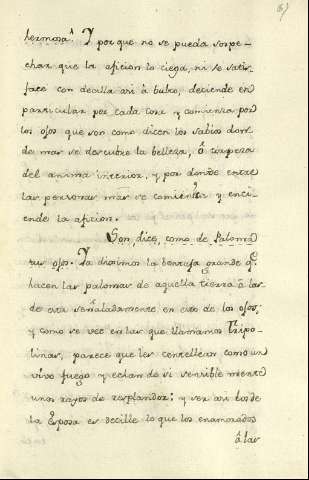 hermosa. Y por que no se pueda sospe-
char que la aficion lo ciega, ni se satis-
face con decilla asi á bulto, deciende en
particular por cada cosa y comienza por
los ojos que son como dicen los sabios don-
de mas se descubre la belleza, ó torpeza
del anima interior, y por donde entre
las personas mas se comienza y enci-
ende la aficion.
Son, dice, como de Paloma
tus ojos. Ya diximos la bentaja grande qe.
hacen las palomas de aquella tierra á las
de esta señaladamente en esto de los ojos,
y como se vee en las que llamamos Tripo-
linas, parece que les centellean como un
vivo fuego y echan de si sensible mente
unos rayos de resplandor: y ser asi los de
la Esposa es decille lo que los enamorados
á las